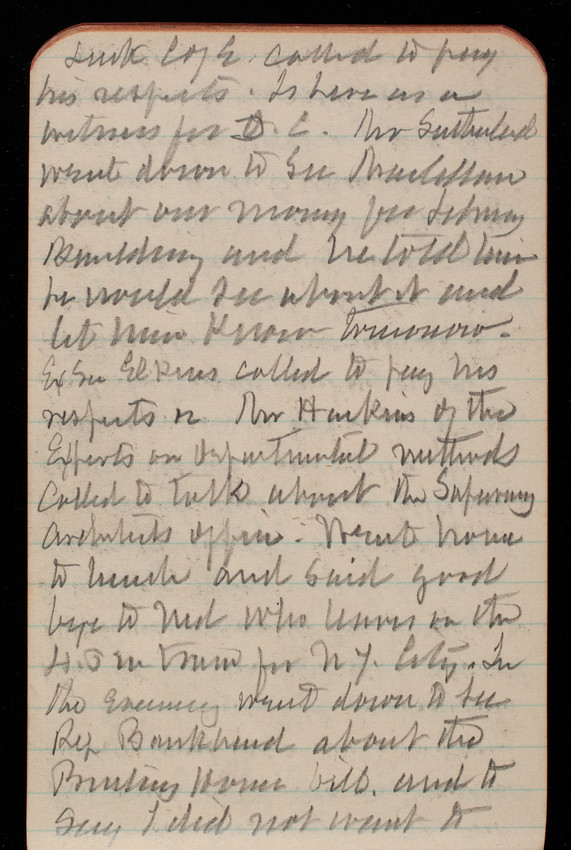 called to pay
his respects. Is here as a
witness for D. C. Mr Sutherland
went down to see
about our money for Library
Building and he told him
he would see about it and
let him know tomorrow.
Ex Sec Elkins called to pay his
respects Mr Haskins of the
Experts on departmental methods
called to talk about the Supervising
Architects office. Went home
to lunch and said good
bye to Ned who leaves on the
train for N Y. City. In
the evening went down to see
Rep Bankhead about the
Printing House bill. and to
say I did not want to